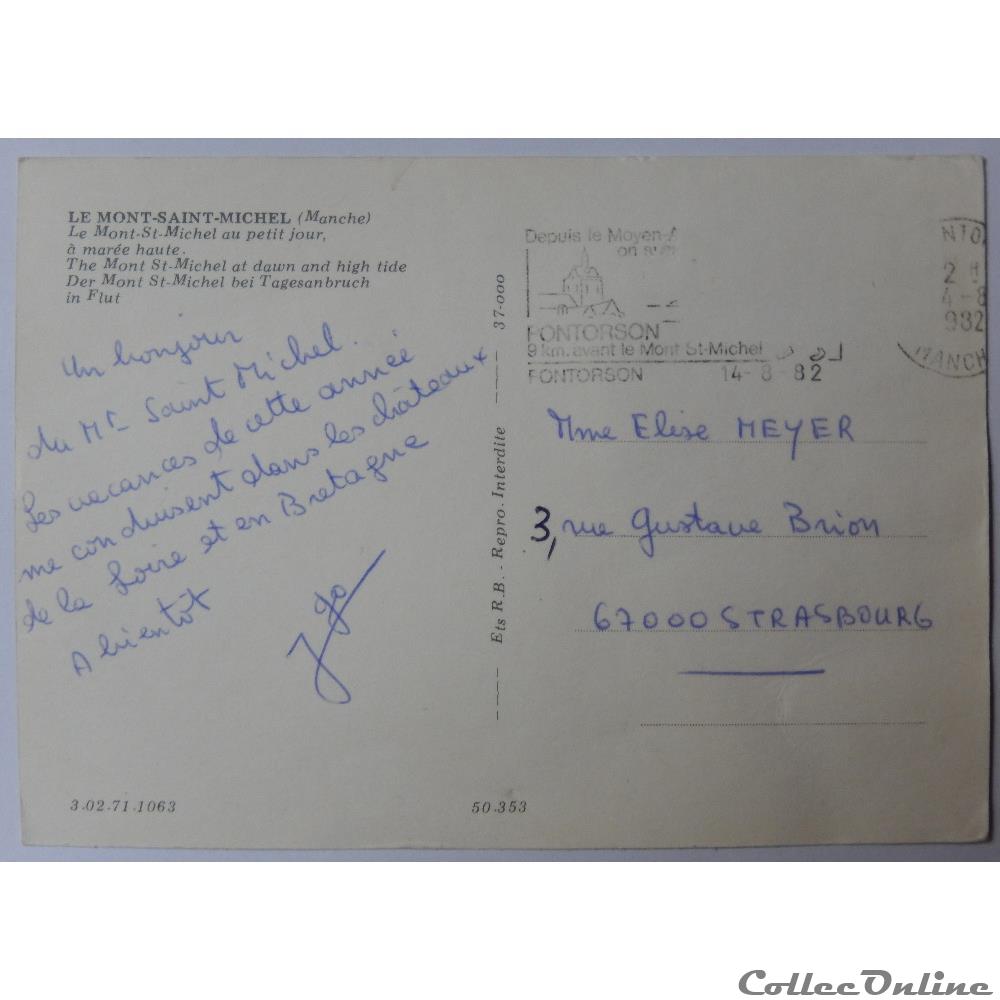 LE MONT-SAINT-MICHEL (Manche)
Le Mont-St-Michel au petit jour,
à marée haute.
The Mont St-Michel at dawn and high tide
Der Mont St-Michel bei Tagesanbruch
in Flut
Un bonjour
du Mt Saint Michel.
Les vacances de cette année
me conduisent dans les châteaux
de la Loire et en Bretagne
A bientôt
Ets R.B. - Repro. Interdite
37-000
Depuis le Moyen-A
on
PONTORSON
9 km. avant le Mont St-Michel
PONTORSON 14-8-82
NTO
2 H
4-8
982
MANCH
Mme Elise MEYER
3, rue Gustave Brion
67000 STRASBOURG
3.02.71.1063
50.353
CollecOnline